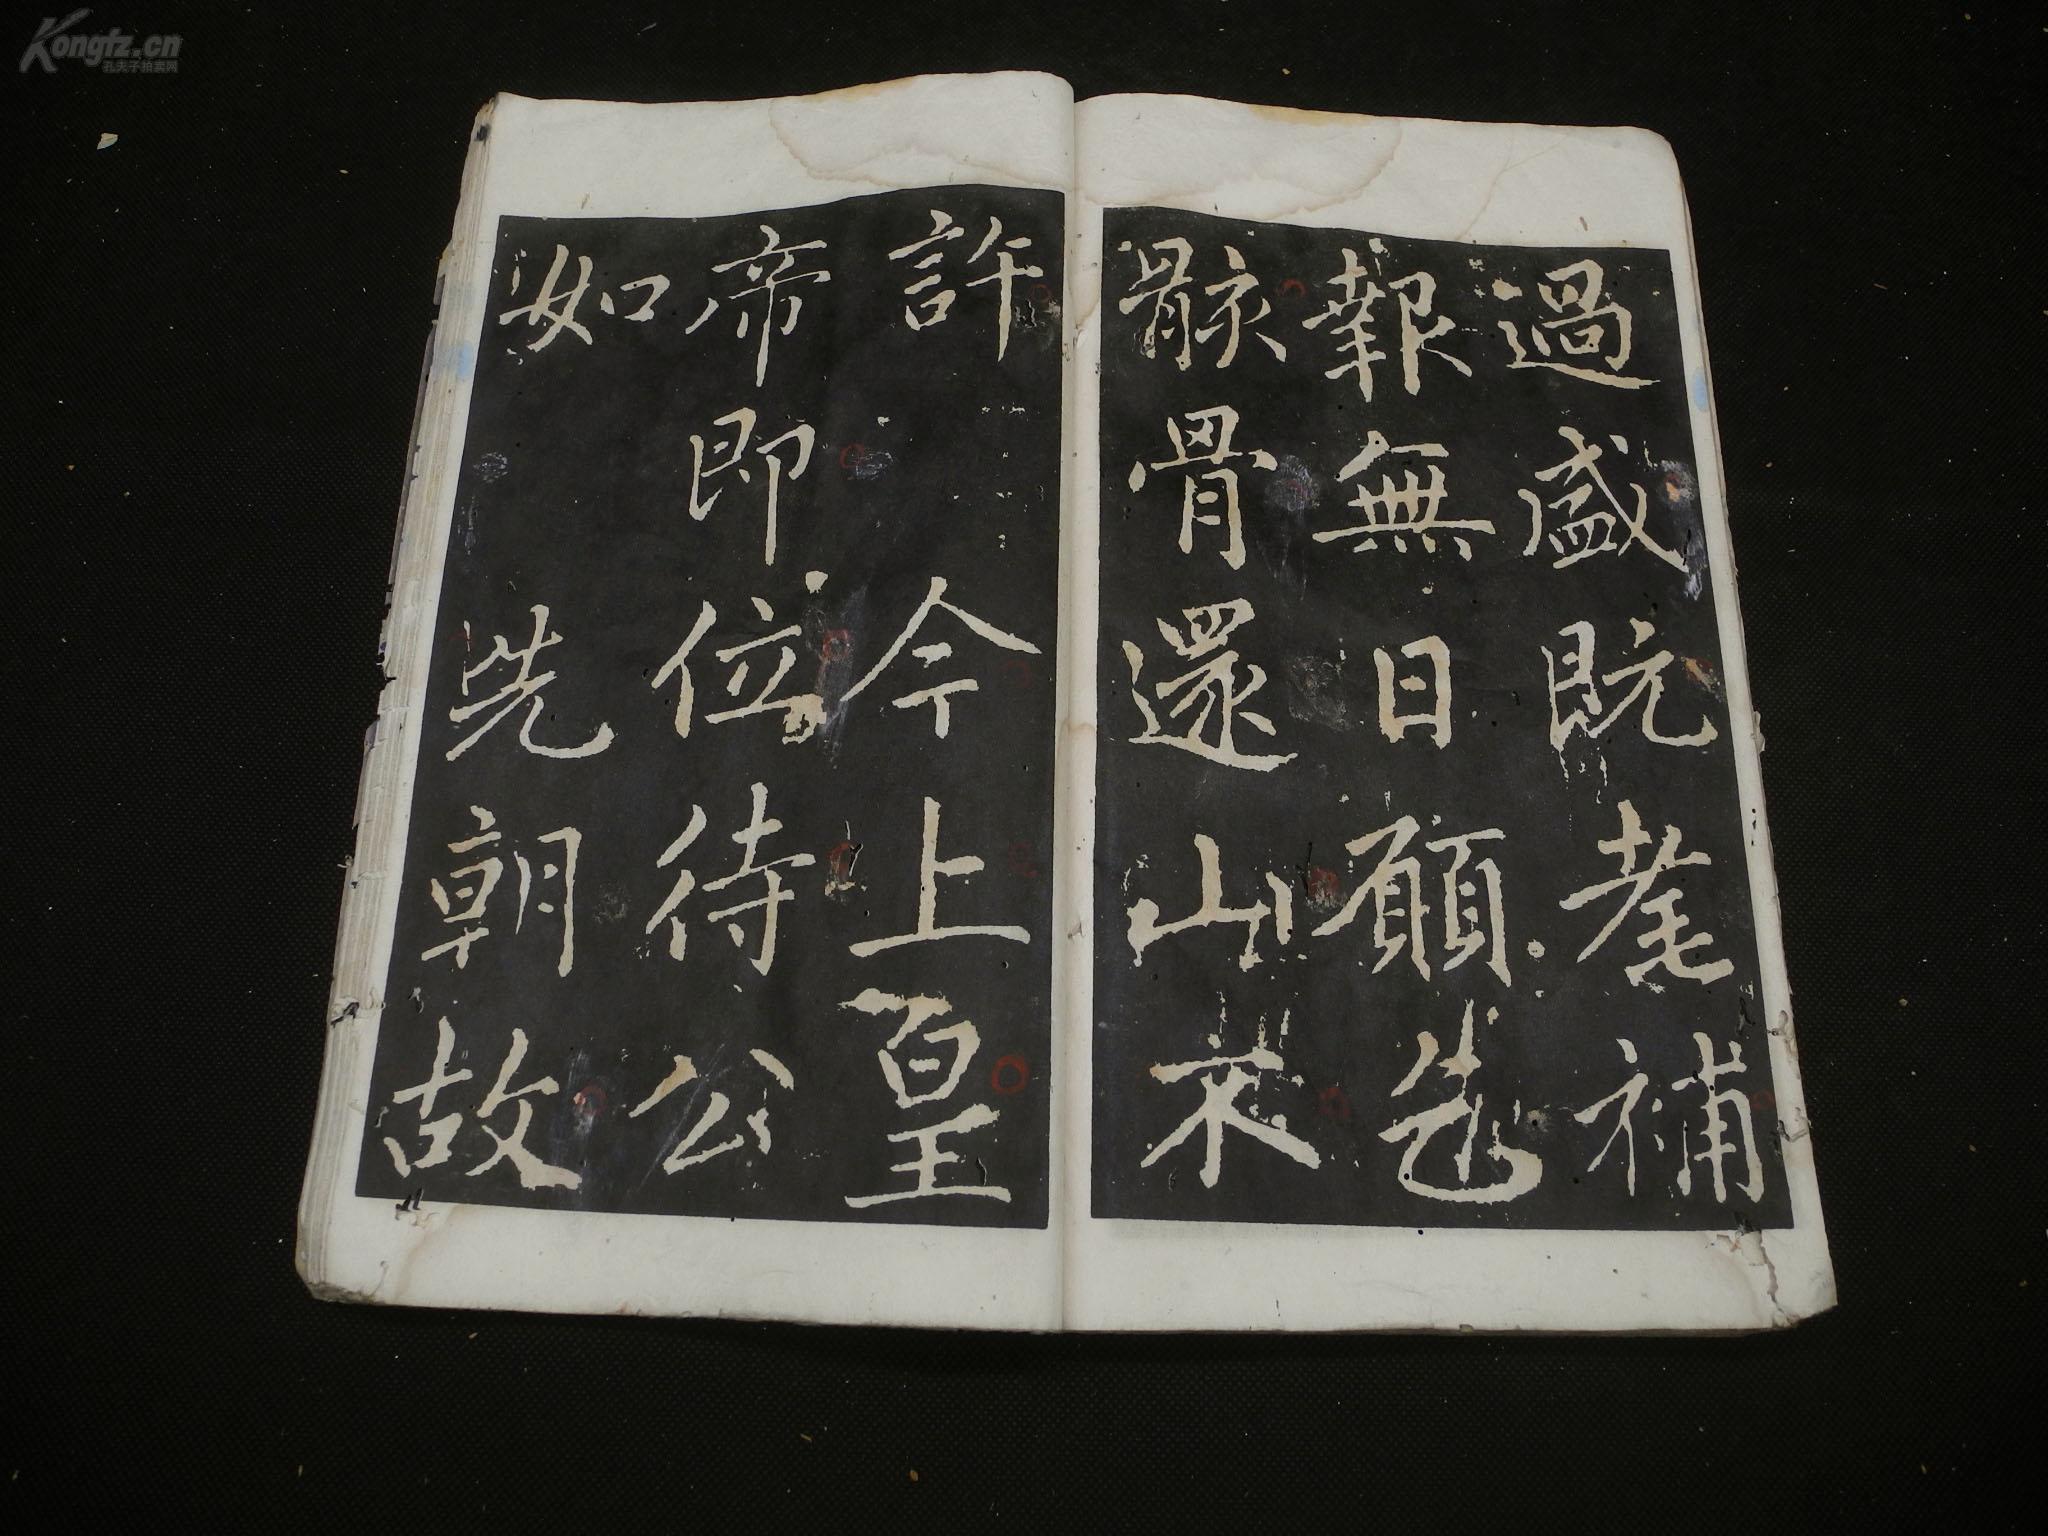 過盛既耄補
報無日願乞
骸骨還山未
許 今上皇
帝即位待公
如 先朝故
Kongfz.cn
孔夫子拍卖网